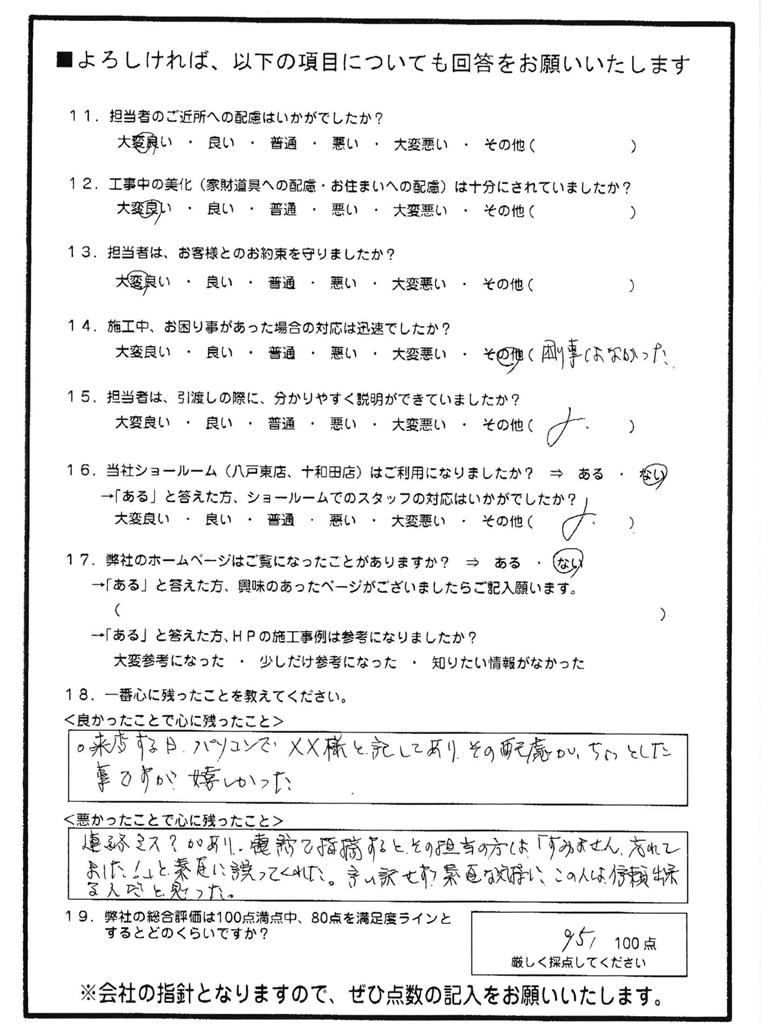 ■よろしければ、以下の項目についても回答をお願いいたします
11．担当者のご近所への配慮はいかがでしたか？
大変良い ・ 良い ・ 普通 ・ 悪い ・ 大変悪い ・ その他（　　　）
12．工事中の美化（家財道具への配慮・お住まいへの配慮）は十分にされていましたか？
大変良い ・ 良い ・ 普通 ・ 悪い ・ 大変悪い ・ その他（　　　）
13．担当者は、お客様とのお約束を守りましたか？
大変良い ・ 良い ・ 普通 ・ 悪い ・ 大変悪い ・ その他（　　　）
14．施工中、お困り事があった場合の対応は迅速でしたか？
大変良い ・ 良い ・ 普通 ・ 悪い ・ 大変悪い ・ その他（ 困り事はなかった
15．担当者は、引渡しの際に、分かりやすく説明ができていましたか？
大変良い ・ 良い ・ 普通 ・ 悪い ・ 大変悪い ・ その他（　　　）
16．当社ショールーム（八戸東店、十和田店）はご利用になりましたか？ ⇒ ある ・ ない
→「ある」と答えた方、ショールームでのスタッフの対応はいかがでしたか？
大変良い ・ 良い ・ 普通 ・ 悪い ・ 大変悪い ・ その他（　　　）
17．弊社のホームページはご覧になったことがありますか？ ⇒ ある ・ ない
→「ある」と答えた方、興味のあったページがございましたらご記入願います。
（　　　）
→「ある」と答えた方、ＨＰの施工事例は参考になりましたか？
大変参考になった ・ 少しだけ参考になった ・ 知りたい情報がなかった
18．一番心に残ったことを教えてください。
＜良かったことで心に残ったこと＞
○来店する日、パソコンで XX様と記してあり、その配慮が、ちょっとした
事ですが 嬉しかった
＜悪かったことで心に残ったこと＞
連絡ミス？があり、電話で指摘すると、その担当の方は「すみません、忘れて
ました！」と素直に謝ってくれた。言い訳せず素直な気持に、この人は信頼出来
る人だと思った。
19．弊社の総合評価は100点満点中、80点を満足度ラインと
するとどのくらいですか？
95/ 100点
厳しく採点してください
※会社の指針となりますので、ぜひ点数の記入をお願いいたします。